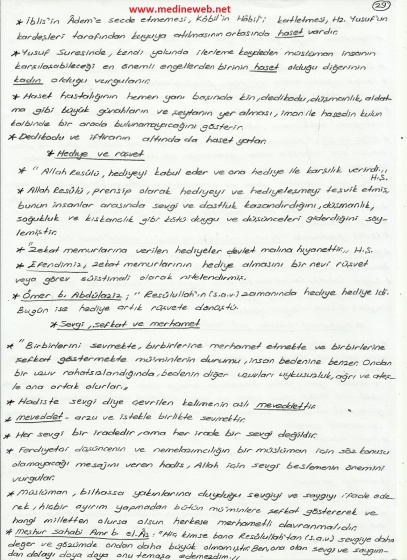 www.medineweb.net
29
* İblis'in Âdem'e secde etmemesi, Kâbil'in Hâbil'i katletmesi, Hz. Yusuf'un
kardeşleri tarafından kuyuya atılmasının arkasında haset vardır.
* Yusuf Suresinde, kendi yolunda ilerleme kaydeden müslüman insanın
karşılaşabileceği en önemli engellerden birinin haset olduğu diğerinin
kadın olduğu vurgulanır.
* Haset hastalığının hemen yanı başında kin, dedikodu, düşmanlık, aldat-
ma gibi büyük günahların ve şeytanın yer alması, iman ile hasedin kulun
kalbinde bir arada bulunamayacağını gösterir.
* Dedikodu ve iftiranın altında da haset yatar.
* Hediye ve rüşvet
* " Allah Resûlü, hediyeyi kabul eder ve ona hediye ile karşılık verirdi.,,
H.Ş.
* Allah Resûlü, prensip olarak hediyeyi ve hediyeleşmeyi teşvik etmiş,
bunun insanlar arasında sevgi ve dostluk kazandırdığını, düşmanlık,
soğukluk ve kıskançlık gibi kötü duygu ve düşünceleri giderdiğini söy-
lemiştir.
* "Zekat memurlarına verilen hediyeler devlet malına hıyanettir.,, H.Ş.
* Efendimiz, zekat memurlarının hediye almasını bir nevi rüşvet
veya görev suistimali olarak nitelendirmiş.
* Ömer b. Abdülaziz; " Resûlullah'ın (s.a.v) zamanında hediye hediye idi.
Bugün ise hediye artık rüşvete dönüştü.
* Sevgi, şefkat ve merhamet
* " Birbirlerini sevmekte, birbirlerine merhamet etmekte ve birbirlerine
şefkat göstermekte mü'minlerin durumu, insan bedenine benzer. Ondan
bir uzuv rahatsızlandığında, bedenin diğer uzuvları uykusuzluk, ağrı ve ateş-
le ona ortak olurlar.,,
* Hadiste sevgi diye çevrilen kelimenin aslı meveddettir.
* meveddet - arzu ve istekle birlikte sevmektir.
* Her sevgi bir iradedir, ama her irade bir sevgi değildir.
* Ferdiyetçi düşüncenin ve nemelazımcılığın bir müslüman için söz konusu
olamayacağı mesajını veren hadis, Allah için sevgi beslemenin önemini
vurgular.
* Müslüman, bilhassa yakınlarına duyduğu sevgiyi ve saygıyı ifade ede-
rek, hiçbir ayırım yapmadan bütün mü'minlere şefkat göstererek ve
hangi milletten olursa olsun herkese merhametli davranmalıdır.
* meşhur sahabi Amr b. el-As: "Hiç kimse bana Resûlullah'tan (s.a.v) sevgiye daha
değer ve gözümde ondan daha büyük olmamıştır. Ben, ona olan sevgi ve saygım-
dan dolayı doya doya onu temaşa edemezdim.,,